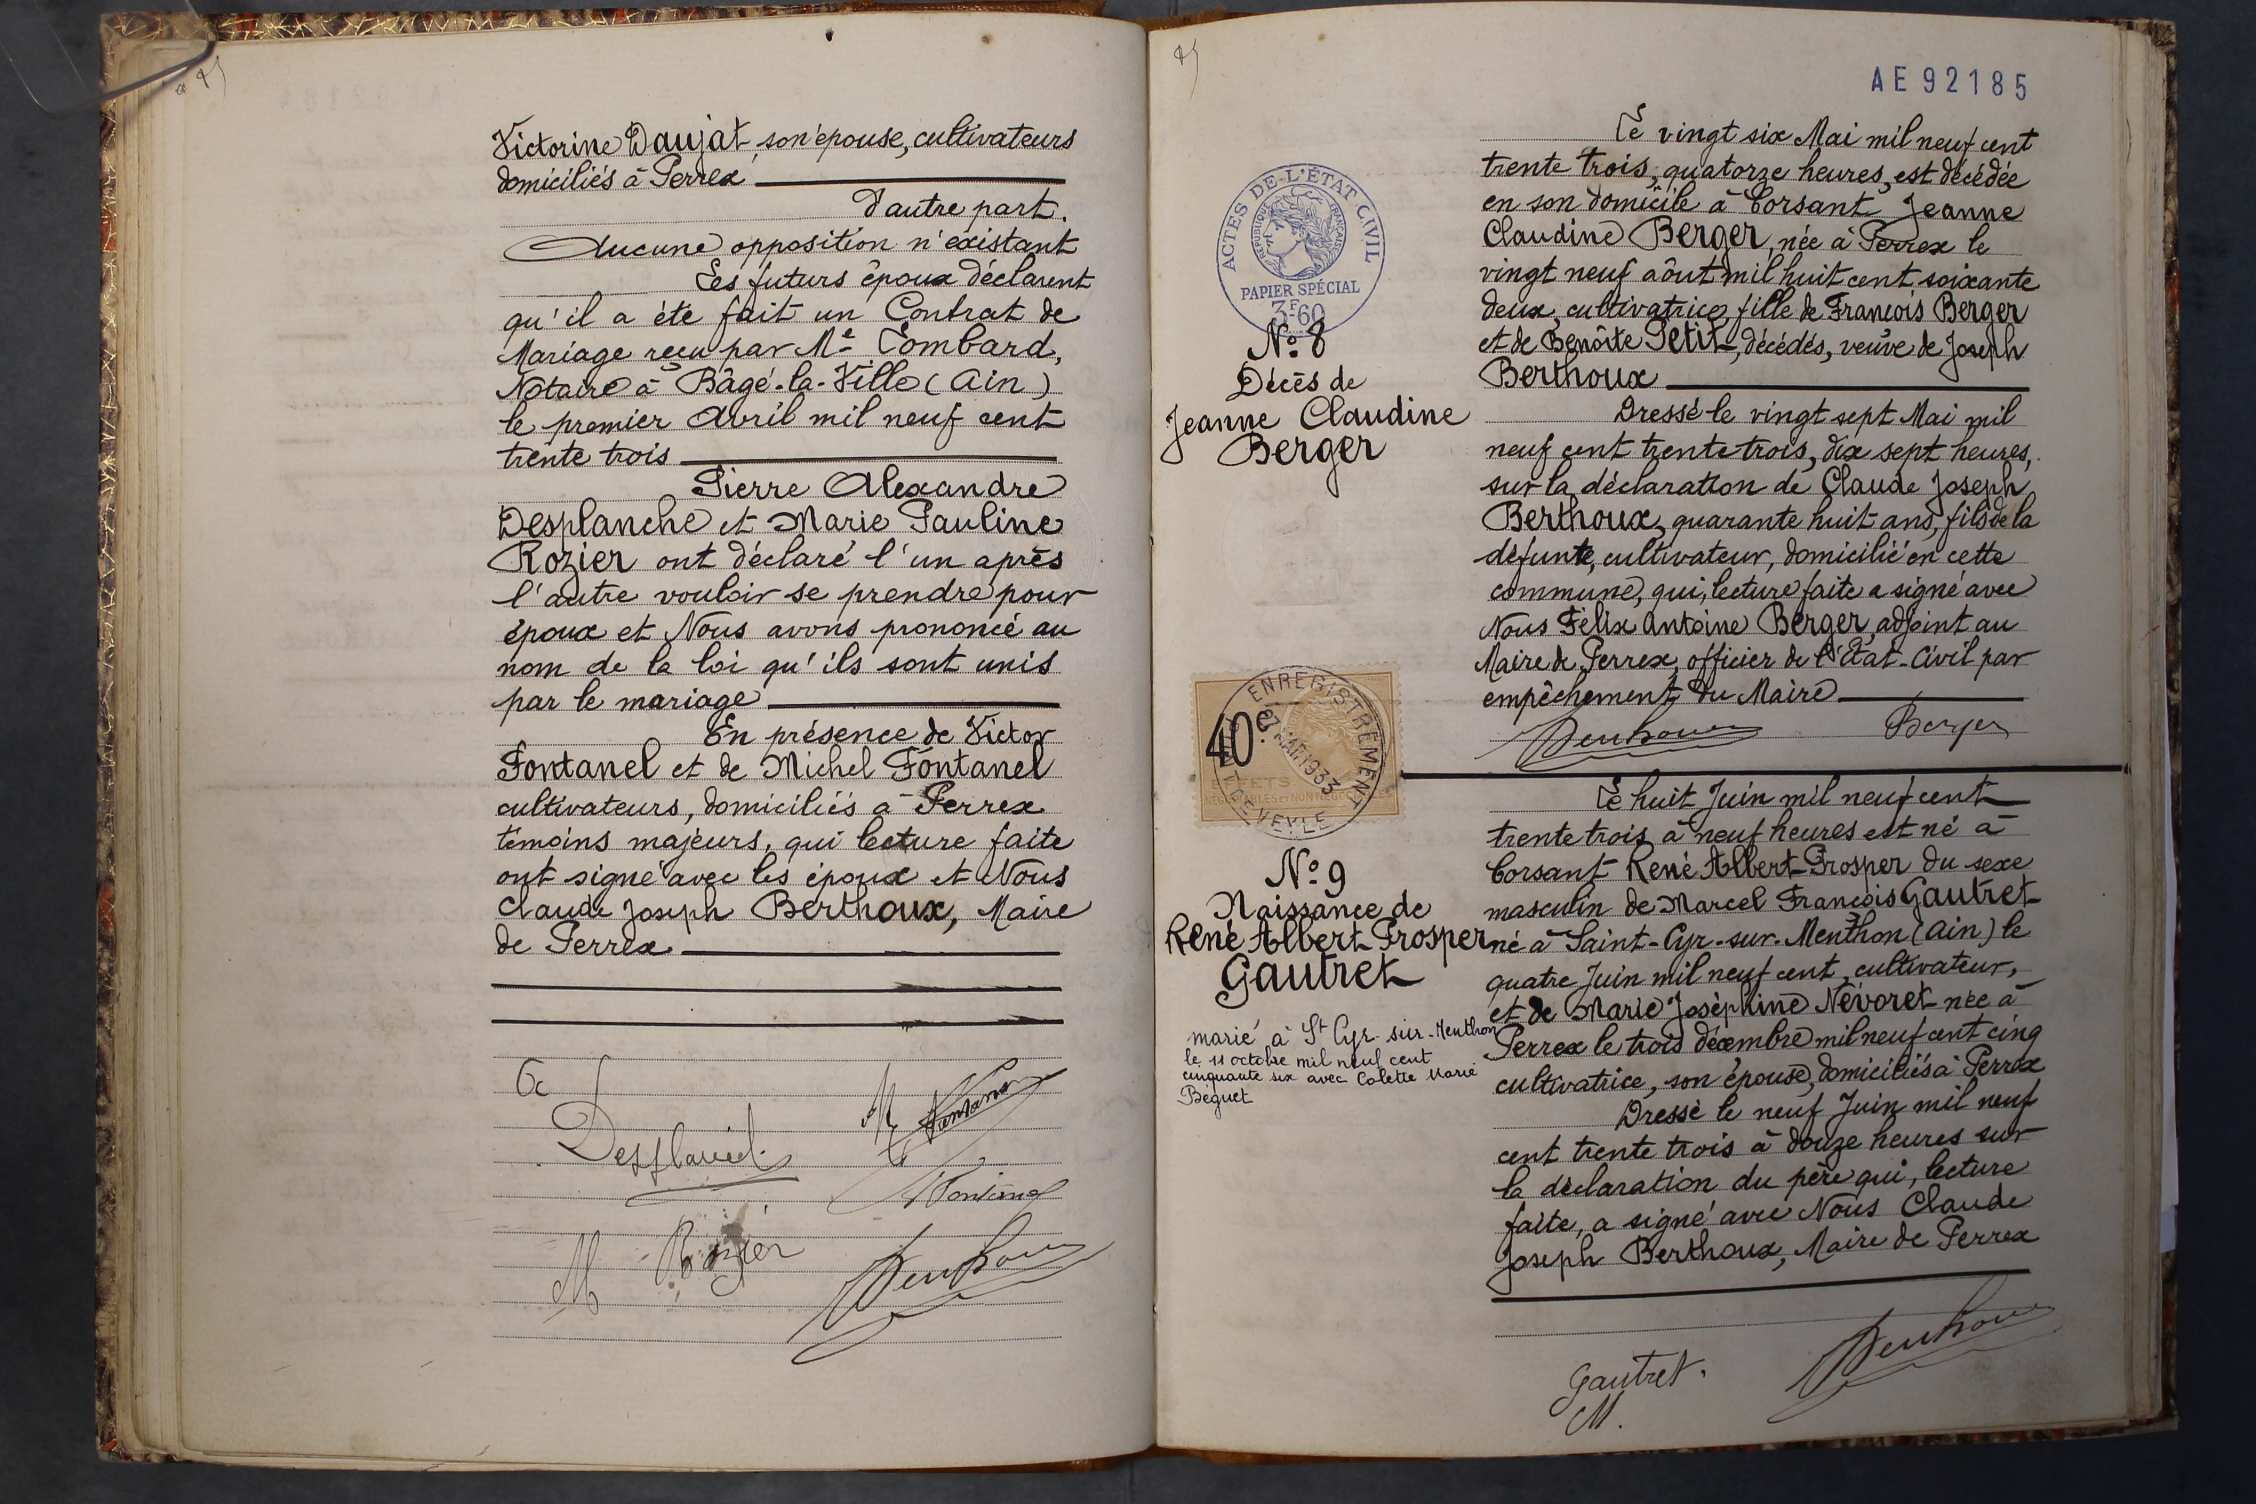 Victorine Daujat, son épouse, cultivateurs
domiciliés à Perrex
d'autre part.
Aucune opposition n'existant
Les futurs époux déclarent
qu'il a été fait un Contrat de
Mariage reçu par Me Tombard,
Notaire à Bâgé-la-Ville (Ain)
le premier Avril mil neuf cent
trente trois
Pierre Alexandre
Desplanche et Marie Pauline
Rozier ont déclaré l'un après
l'autre vouloir se prendre pour
époux et Nous avons prononcé au
nom de la loi qu'ils sont unis
par le mariage
En présence de Victor
Fontanel et de Michel Fontanel
cultivateurs, domiciliés à Perrex
témoins majeurs, qui lecture faite
ont signé avec les époux et Nous
Claude Joseph Berthoux, Maire
de Perrex
M Fontanel
Fontanel
M Rozier
Berthoux
AE 92185
ACTES DE L'ÉTAT CIVIL
RÉPUBLIQUE FRANÇAISE
PAPIER SPÉCIAL
3F60
No 8
Décès de
Jeanne Claudine
Berger
Le vingt six Mai mil neuf cent
trente trois, quatorze heures, est décédée
en son domicile à Corsant Jeanne
Claudine Berger, née à Perrex le
vingt neuf aôut mil huit cent soixante
deux, cultivatrice, fille de François Berger
et de Benôite Petit, décédés, veuve de Joseph
Berthoux
Dressé le vingt sept Mai mil
neuf cent trente trois, dix sept heures,
sur la déclaration de Claude Joseph
Berthoux, quarante huit ans, fils de la
défunte, cultivateur, domicilié en cette
commune, qui, lecture faite a signé avec
Nous Félix Antoine Berger, adjoint au
Maire de Perrex, officier de l'Etat-Civil par
empêchement du Maire
Berthoux Berger
40c.
ENREGISTREMENT
1933
No 9
Naissance de
René Albert Prosper
Gautret
marié à St Cyr-sur-Menthon
le 11 octobre mil neuf cent
cinquante six avec Colette Marie
Beguet
Le huit Juin mil neuf cent
trente trois à neuf heures est né à
Corsant René Albert Prosper du sexe
masculin de Marcel François Gautret
né à Saint-Cyr-sur-Menthon (Ain) le
quatre Juin mil neuf cent, cultivateur,
et de Marie Joséphine Névoret née à
Perrex le trois décembre mil neuf cent cinq
cultivatrice, son épouse, domiciliés à Perrex
Dressé le neuf Juin mil neuf
cent trente trois à douze heures sur
la déclaration du père qui, lecture
faite, a signé avec Nous Claude
Joseph Berthoux, Maire de Perrex
Berthoux
Gautret.
M.